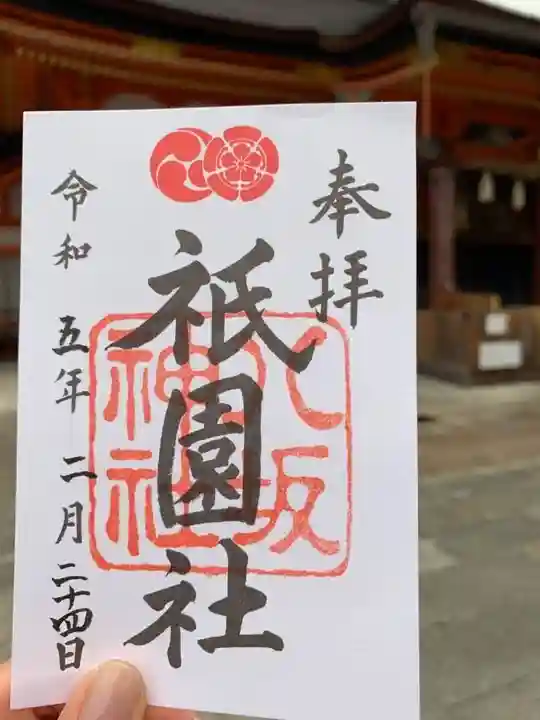 奉拝
祇園社
八坂
神社
令和 五年 二月 二十四日